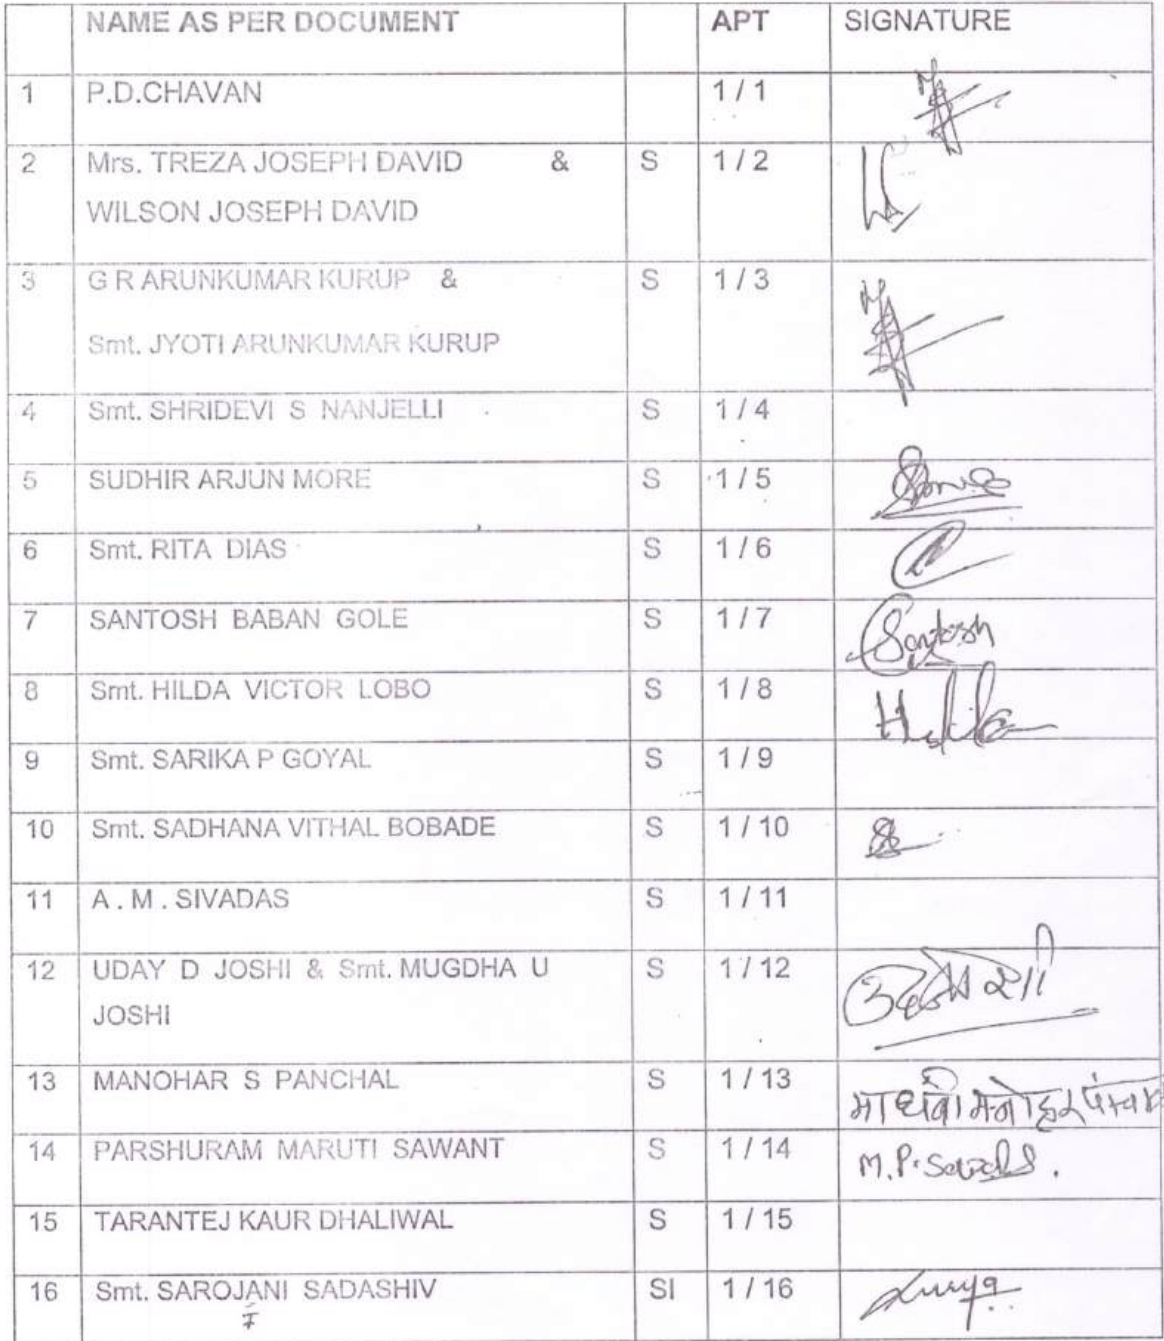 NAME AS PER DOCUMENT APT SIGNATURE
1 P.D.CHAVAN 1 / 1
2 Mrs. TREZA JOSEPH DAVID & S 1 / 2
WILSON JOSEPH DAVID
3 G R ARUNKUMAR KURUP & S 1 / 3
Smt. JYOTI ARUNKUMAR KURUP
4 Smt. SHRIDEVI S NANJELLI S 1 / 4
5 SUDHIR ARJUN MORE S 1 / 5
6 Smt. RITA DIAS S 1 / 6
7 SANTOSH BABAN GOLE S 1 / 7 Santosh
8 Smt. HILDA VICTOR LOBO S 1 / 8
9 Smt. SARIKA P GOYAL S 1 / 9
10 Smt. SADHANA VITHAL BOBADE S 1 / 10
11 A . M . SIVADAS S 1 / 11
12 UDAY D JOSHI & Smt. MUGDHA U S 1 / 12
JOSHI
13 MANOHAR S PANCHAL S 1 / 13 माधवी मनोहर पंचाळ
14 PARSHURAM MARUTI SAWANT S 1 / 14 M.P.
15 TARANTEJ KAUR DHALIWAL S 1 / 15
16 Smt. SAROJANI SADASHIV SI 1 / 16